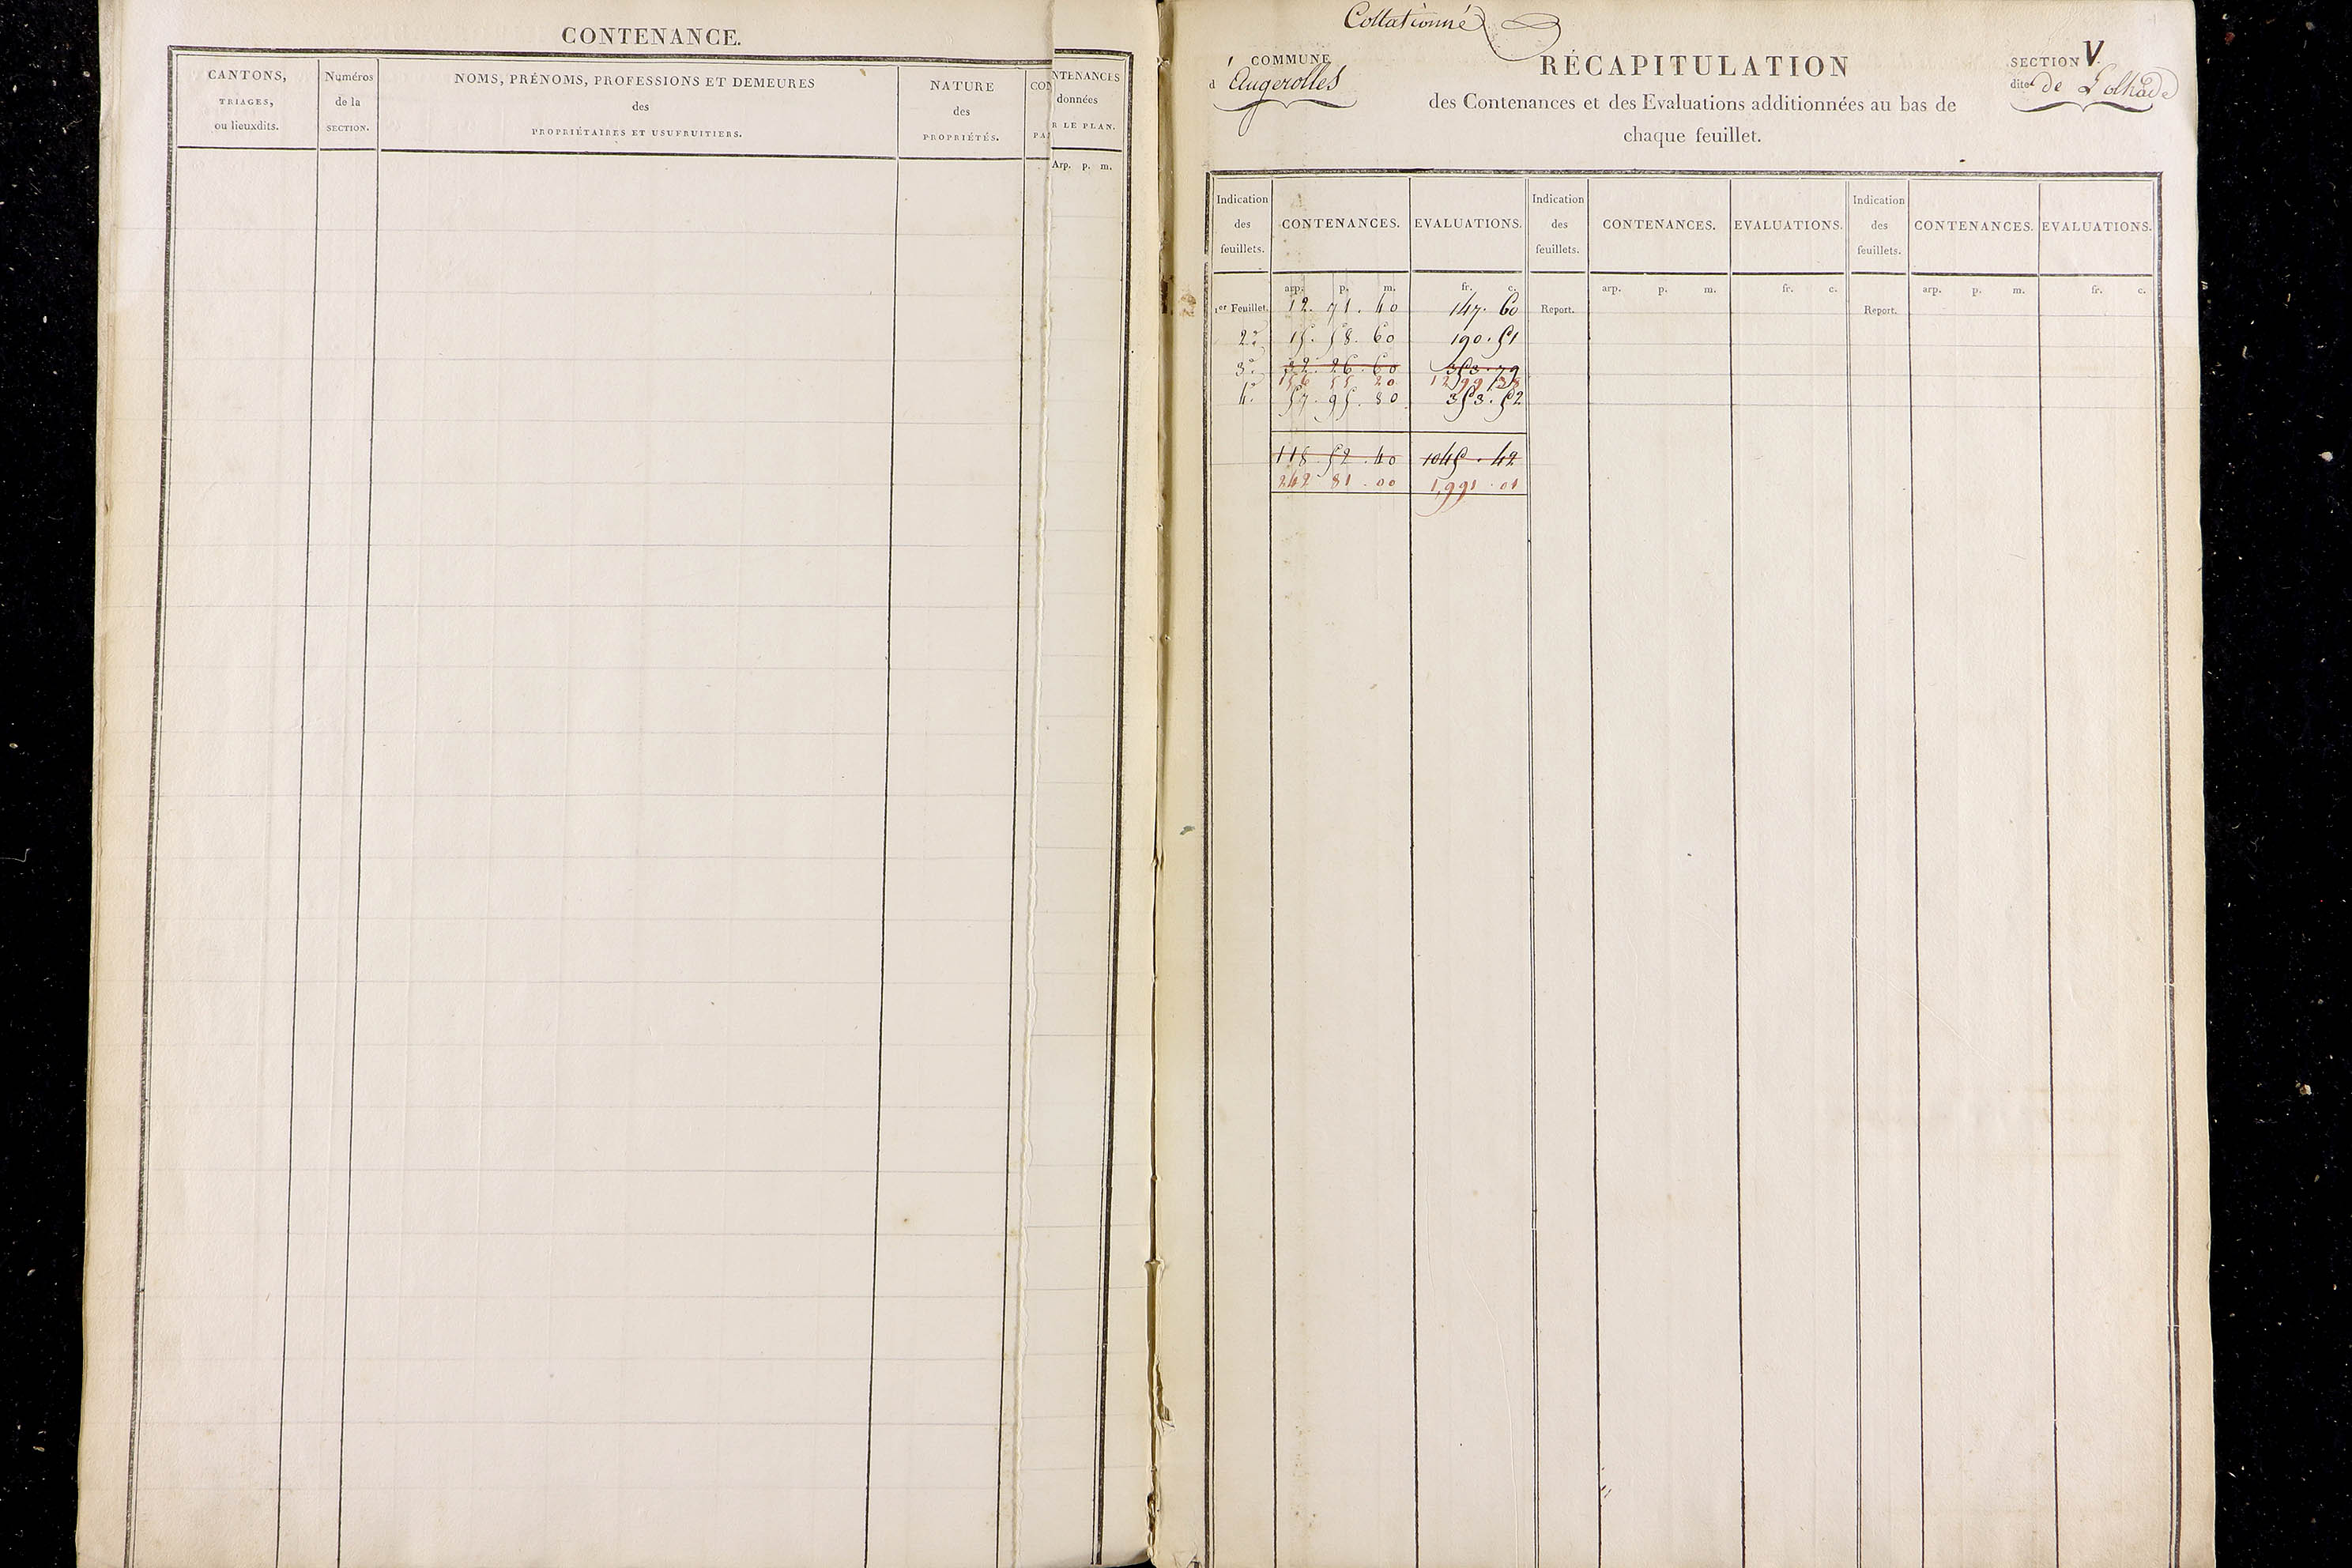 CONTENANCE.
CANTONS,
TRIAGES,
ou lieuxdits.
Numéros
de la
SECTION.
NOMS, PRÉNOMS, PROFESSIONS ET DEMEURES
des
PROPRIÉTAIRES ET USUFRUITIERS.
NATURE
des
PROPRIÉTÉS.
CON
PA
NTENANCES
données
R LE PLAN.
Arp. p. m.
Collationné
COMMUNE
d'Augerolles
RÉCAPITULATION
des Contenances et des Evaluations additionnées au bas de
chaque feuillet.
SECTION V.
dite de Lolhade
Indication
des
feuillets.
CONTENANCES.
EVALUATIONS.
Indication
des
feuillets.
CONTENANCES.
EVALUATIONS.
Indication
des
feuillets.
CONTENANCES.
EVALUATIONS.
arp. p. m. fr. c. arp. p. m. fr. c. arp. p. m. fr. c.
1er Feuillet. 12. 71. 40 147. 60 Report. Report.
2e 15. 58. 60 190. 51
3e 32. 26. 60 353. 79
156 55 20 1299 38
4e 57. 95. 80 353. 52
118. 52. 40 1045. 42
242 81. 00 1,991. 01